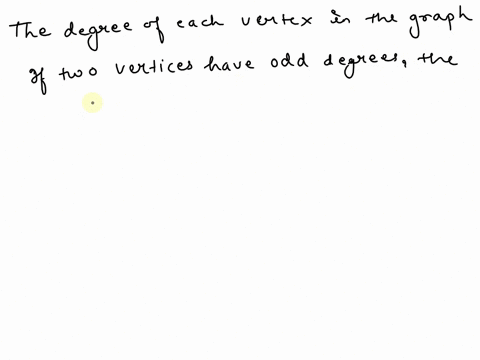 The degree of each vertex in the graph
If two vertices have odd degrees, the